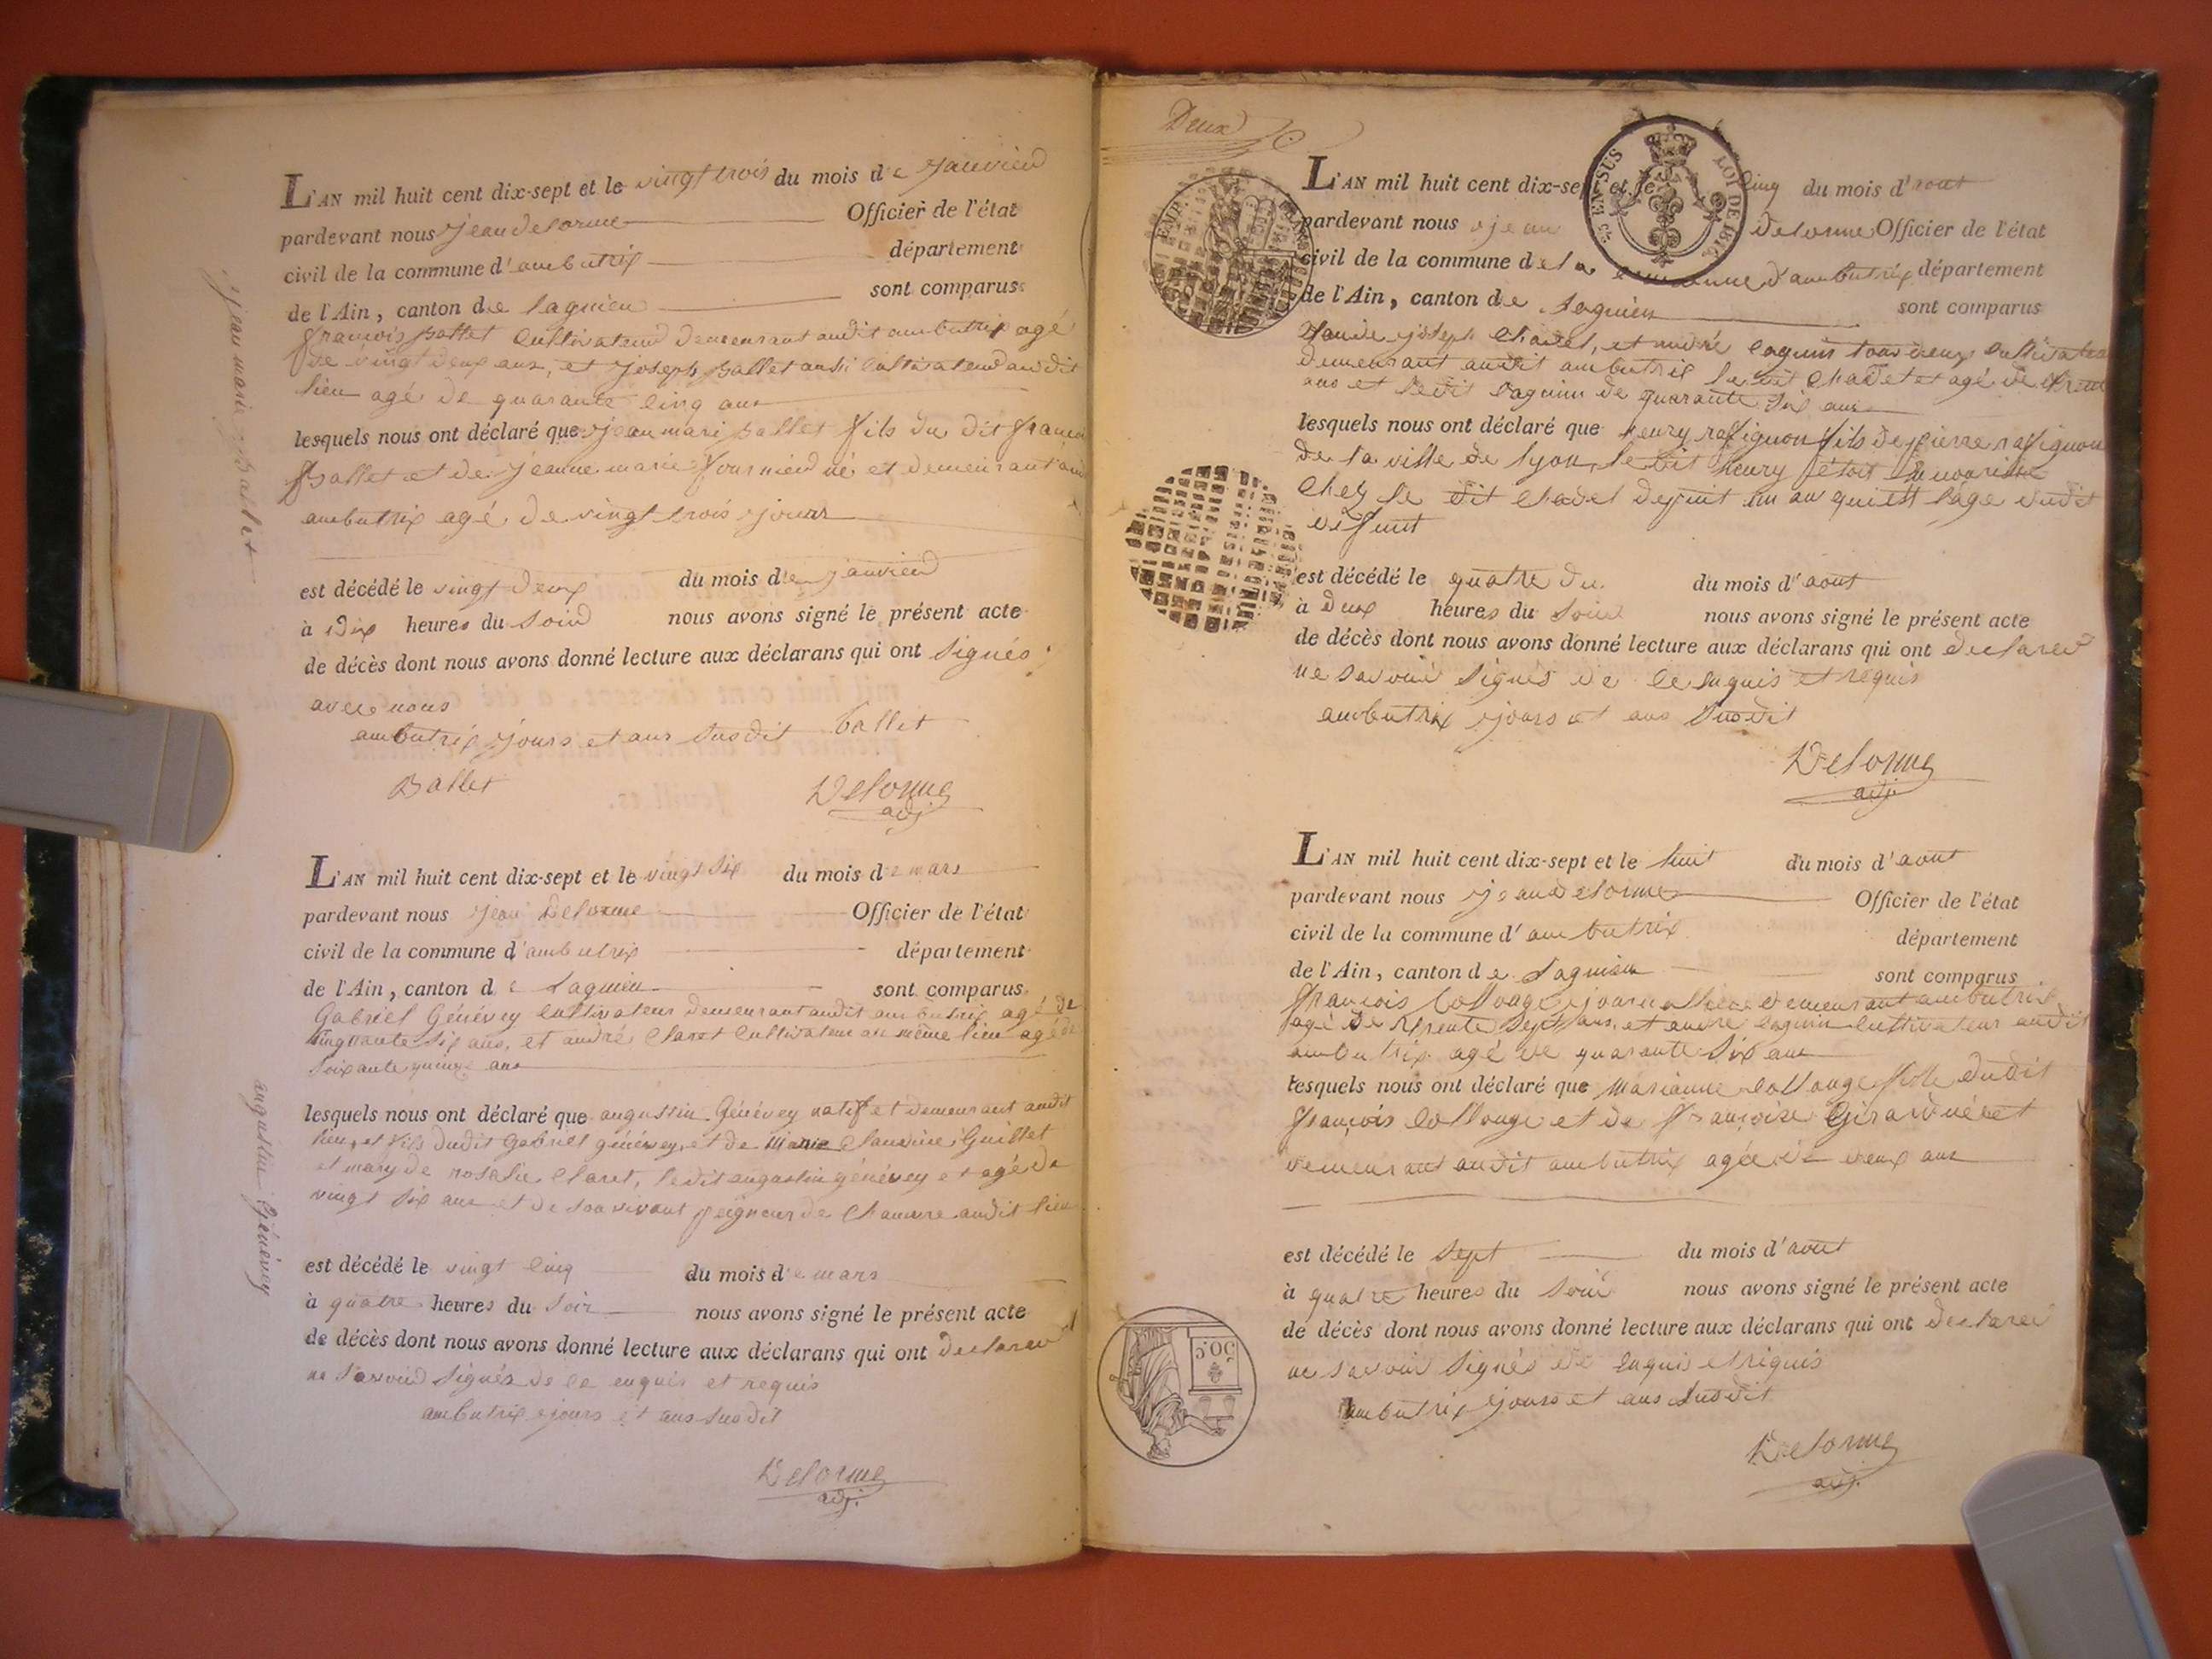 L'AN mil huit cent dix-sept et le vingt trois du mois de janvier
pardevant nous jean delorme Officier de l'état
civil de la commune d'ambutrix département
de l'Ain, canton de lagnieu sont comparus
françois Ballet Cultivateur demeurant audit ambutrix agé
de vingt deux ans, et joseph Ballet aussi Cultivateur audit
lieu agé de quarante cinq ans
lesquels nous ont déclaré que jean mari Ballet fils du dit françois
Ballet et de jeanne marie fournier né et demeurant
ambutrix agé de vingt trois jours
est décédé le vingt deux du mois de janvier
à dix heures du soir nous avons signé le présent acte
de décès dont nous avons donné lecture aux déclarans qui ont signés
avec nous
ambutrix jours et ans susdit ballet
Ballet Delorme
adj
jean marie Ballet
L'AN mil huit cent dix-sept et le vingt six du mois de mars
pardevant nous jean Delorme Officier de l'état
civil de la commune d'ambutrix département
de l'Ain, canton de Lagnieu sont comparus
Gabriel Génévey cultivateur demeurant audit ambutrix agé de
cinquante six ans, et andré Claret Cultivateur au même lieu agé de
soixante quinze ans
lesquels nous ont déclaré que augustin Génévey natif et demeurant audit
lieu, et fils dudit Gabriel génévey, et de marie Claudine Guillet
et mary de rosalie Claret, ledit augustin génévey et agé de
vingt six ans et de son vivant peigneur de Chanvre audit lieu
est décédé le vingt cinq du mois de mars
à quatre heures du soir nous avons signé le présent acte
de décès dont nous avons donné lecture aux déclarans qui ont declarer
ne savoir signés de ce enquis et requis
ambutrix jours et ans susdit
Delorme
adj.
augustin Génévey
Deux
25 EN SUS LOI DE 1816
L'AN mil huit cent dix-sept et le cinq du mois d'aout
pardevant nous jean delorme Officier de l'état
civil de la commune de la commune d'ambutrix département
de l'Ain, canton de Lagnieu sont comparus
Claude joseph Chadel, et andré Cagnin tous deux cultivateurs
demeurant audit ambutrix le dit Chadel et agé de trente
ans et ledit Cagnin de quarante six ans
lesquels nous ont déclaré que henry rafignon fils de pierre rafignon
de la ville de lyon, le dit henry étoit en nourisse
Chez le dit Chadel depuit un an qui est l'age dudit
defunt
est décédé le quatre du du mois d'aout
à deux heures du soir nous avons signé le présent acte
de décès dont nous avons donné lecture aux déclarans qui ont declarer
ne savoir signés de ce enquis et requis
ambutrix jours et ans susdit
Delorme
adj.
L'AN mil huit cent dix-sept et le huit du mois d'aout
pardevant nous jean delorme Officier de l'état
civil de la commune d'ambutrix département
de l'Ain, canton de Lagnieu sont comparus
françois Collouge journallier demeurant ambutrix
agé de trente sept ans, et andré Cagnin cultivateur audit
ambutrix agé de quarante six ans
lesquels nous ont déclaré que marianne collouge fille dudit
françois Collouge et de françoise Girard née et
demeurant audit ambutrix agée de deux ans
est décédé le sept du mois d'aout
à quatre heures du soir nous avons signé le présent acte
de décès dont nous avons donné lecture aux déclarans qui ont declarer
ne savoir signés de enquis et requis
ambutrix jours et ans susdit
Delorme
adj.
50 C.